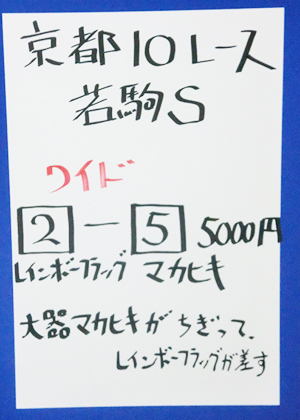 京都10レース
若駒S
ワイド
2-5 5000円
レインボーフラッグ マカヒキ
大器マカヒキがちぎって、
レインボーフラッグが差す